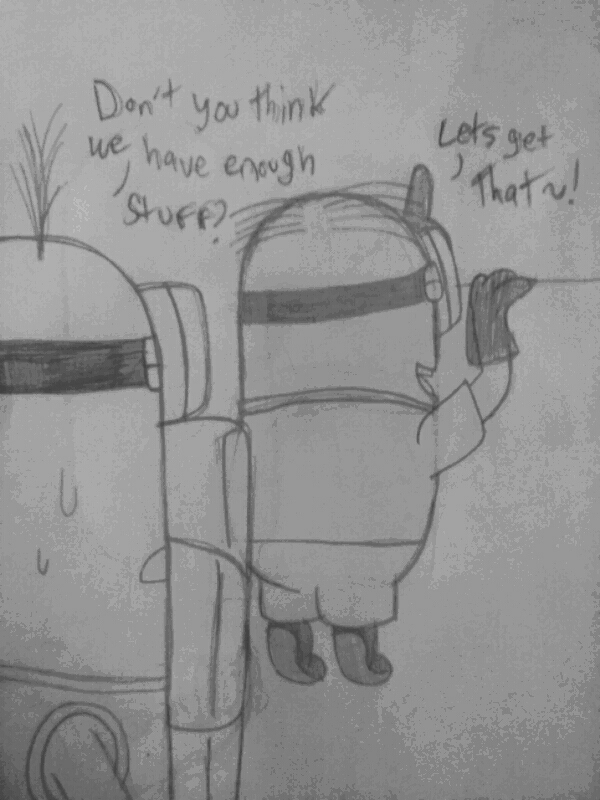 Don't you think
we have enough
Stuff?
Lets get
That~!